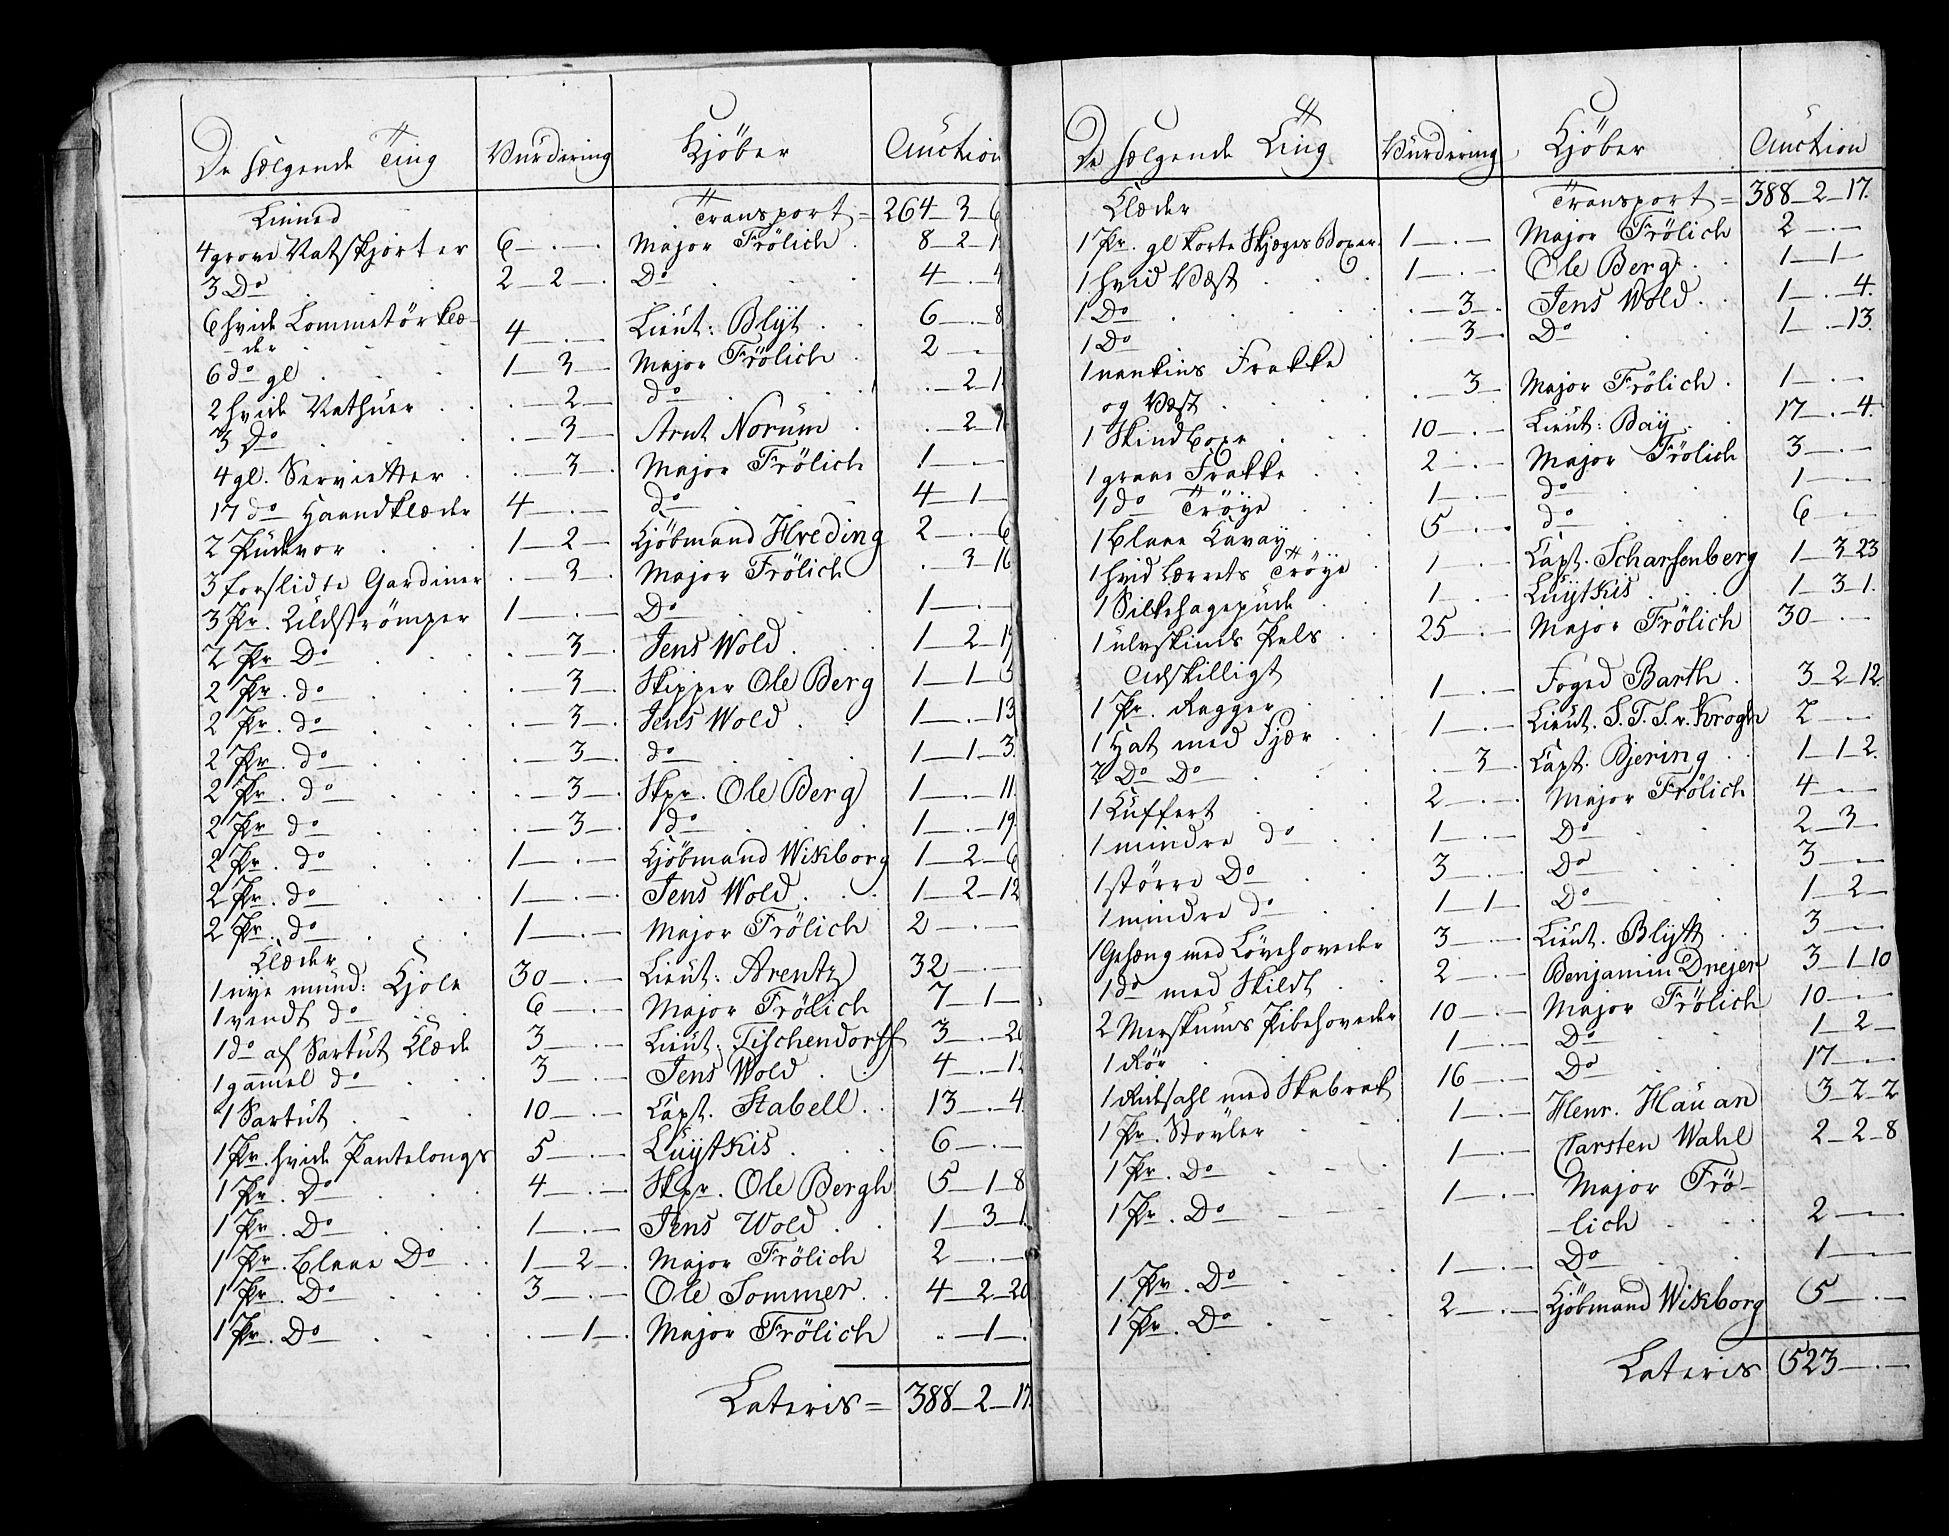 De sælgende Ting Vurdering Kjöber Auction
Linned Transport = 264_3_6
4 grove Natskjorter 6_._ Major Frölich 8_2_1
3 Do 2_2_. Do 4_._4
6 hvide Lommetörklæ-
der 4_._ Lieut: Blyt 6_._8
6 do gl 1_3_ Major Frölich 2_._
2 hvide Nathuer ._2_ do ._2_1
3 Do ._3_ Arnt Norum ._2_1
4 gl. Servietter ._3_ Major Frölich 1_._
17 do Haandklæder 4_._ do 4_1_
2 Pudevor 1_2_ Kjöbmand Hveding 2_._6
3 forslidte Gardiner ._3_ Major Frölich ._3_16
3 Pr. Uldströmper 1_._ Do 1_._
2 Pr Do ._3_ Jens Wold 1_2_1
2 Pr. do ._3_ Skipper Ole Berg 1_1_5
2 Pr. do ._3_ Jens Wold 1_._13
2 Pr. do ._3_ do 1_1_3
2 Pr. do ._3_ Skpr. Ole Berg 1_._11
2 Pr do ._3_ do 1_._19
2 Pr. do 1_._ Kjöbmand Wikborg 1_2_6
2 Pr. do 1_._ Jens Wold 1_2_12
2 Pr. do 1_._ Major Frölich 2_._
Klæder
1 nye mund: Kjole 30_._ Lieut: Arentz 32_._
1 vendt do 6_._ Major Frölich 7_1_
1 do af Sartut Klæde 3_._ Lieut. Tischendorff 3_._20
1 gammel do 3_._ Jens Wold 4_._12
1 Sartut 10_._ Capt. Stabell 13_._4
1 Pr. hvide Pantelongs 5_._ Luytkis 6_._
1 Pr. Do 4_._ Skpr. Ole Bergh 5_1_8
1 Pr. Do 1_._ Jens Wold 1_3_1
1 Pr. blaae Do 1_2_. Major Frölich 2_._
1 Pr. Do 3_._ Ole Sommer 4_2_20
1 Pr. Do ._1_. Major Frölich ._1_
Lateris = 388_2_17.
De sælgende Ting Vurdering Kjöber Auction
Klæder Transport = 388_2_17.
1 Pr. gl korte Skjægs Boxer 1_._ Major Frölich 2_._
1 hvid Væst 1_._ Ole Berg 1_1_
1 Do ._3_. Jens Wold 1_._4.
1 Do ._3_. Do 1_._13.
1 nankins Frakke
og Væst ._3_ Major Frölich 1_._
1 Skindboxe 10_._ Lieut: Bay 17_._4.
1 graae Frakke 2_._ Major Frölich 3_._
1 do Tröye 1_._ do 1_._
1 blaae Kavay 5_._ do 6_._
1 hvid Lærrets Tröye 1_._ Capt. Scharffenberg 1_3_23
1 Silkehagepude 1_._ Luytkis 1_3_1.
1 ulvskinds Pels 25_._ Major Frölich 30_._
Adskilligt
1 Pr. Ragger 1_._ Foged Barth 3_2_12.
1 Hat med Fjær 1_._ Lieut. S. T. S. v. Krogh 2_._
2 Do Do ._3_. Capt. Bjering 1_1_2.
1 Kuffert 2_._ Major Frölich 4_._
1 mindre do 1_._ Do 2_3_
1 större Do 3_._ Do 3_._
1 mindre do 1_1_ Do 1_2_
1 Gehæng med Lövehoveder 3_._ Lieut. Blytt 3_._
1 do med Skildt 2_._ Benjamin Drejer 3_1_10
2 Merskums Pibehoveder 10_._ Major Frölich 10_._
1 Rör 1_._ Do 1_2_
1 Ridsahl med Skabrak 16_._ Do 17_._
1 Pr. Stövler 1_._ Henr. Hauan 3_2_2
1 Pr. Do 1_._ Carsten Wahl 2_2_8
1 Pr. Do 1_._ Major Frö-
-lich 2_._
1 Pr. Do 1_._ Do 1_._
1 Pr. Do 2_._ Kjöbmand Wikborg 5_._
Lateris 523_._